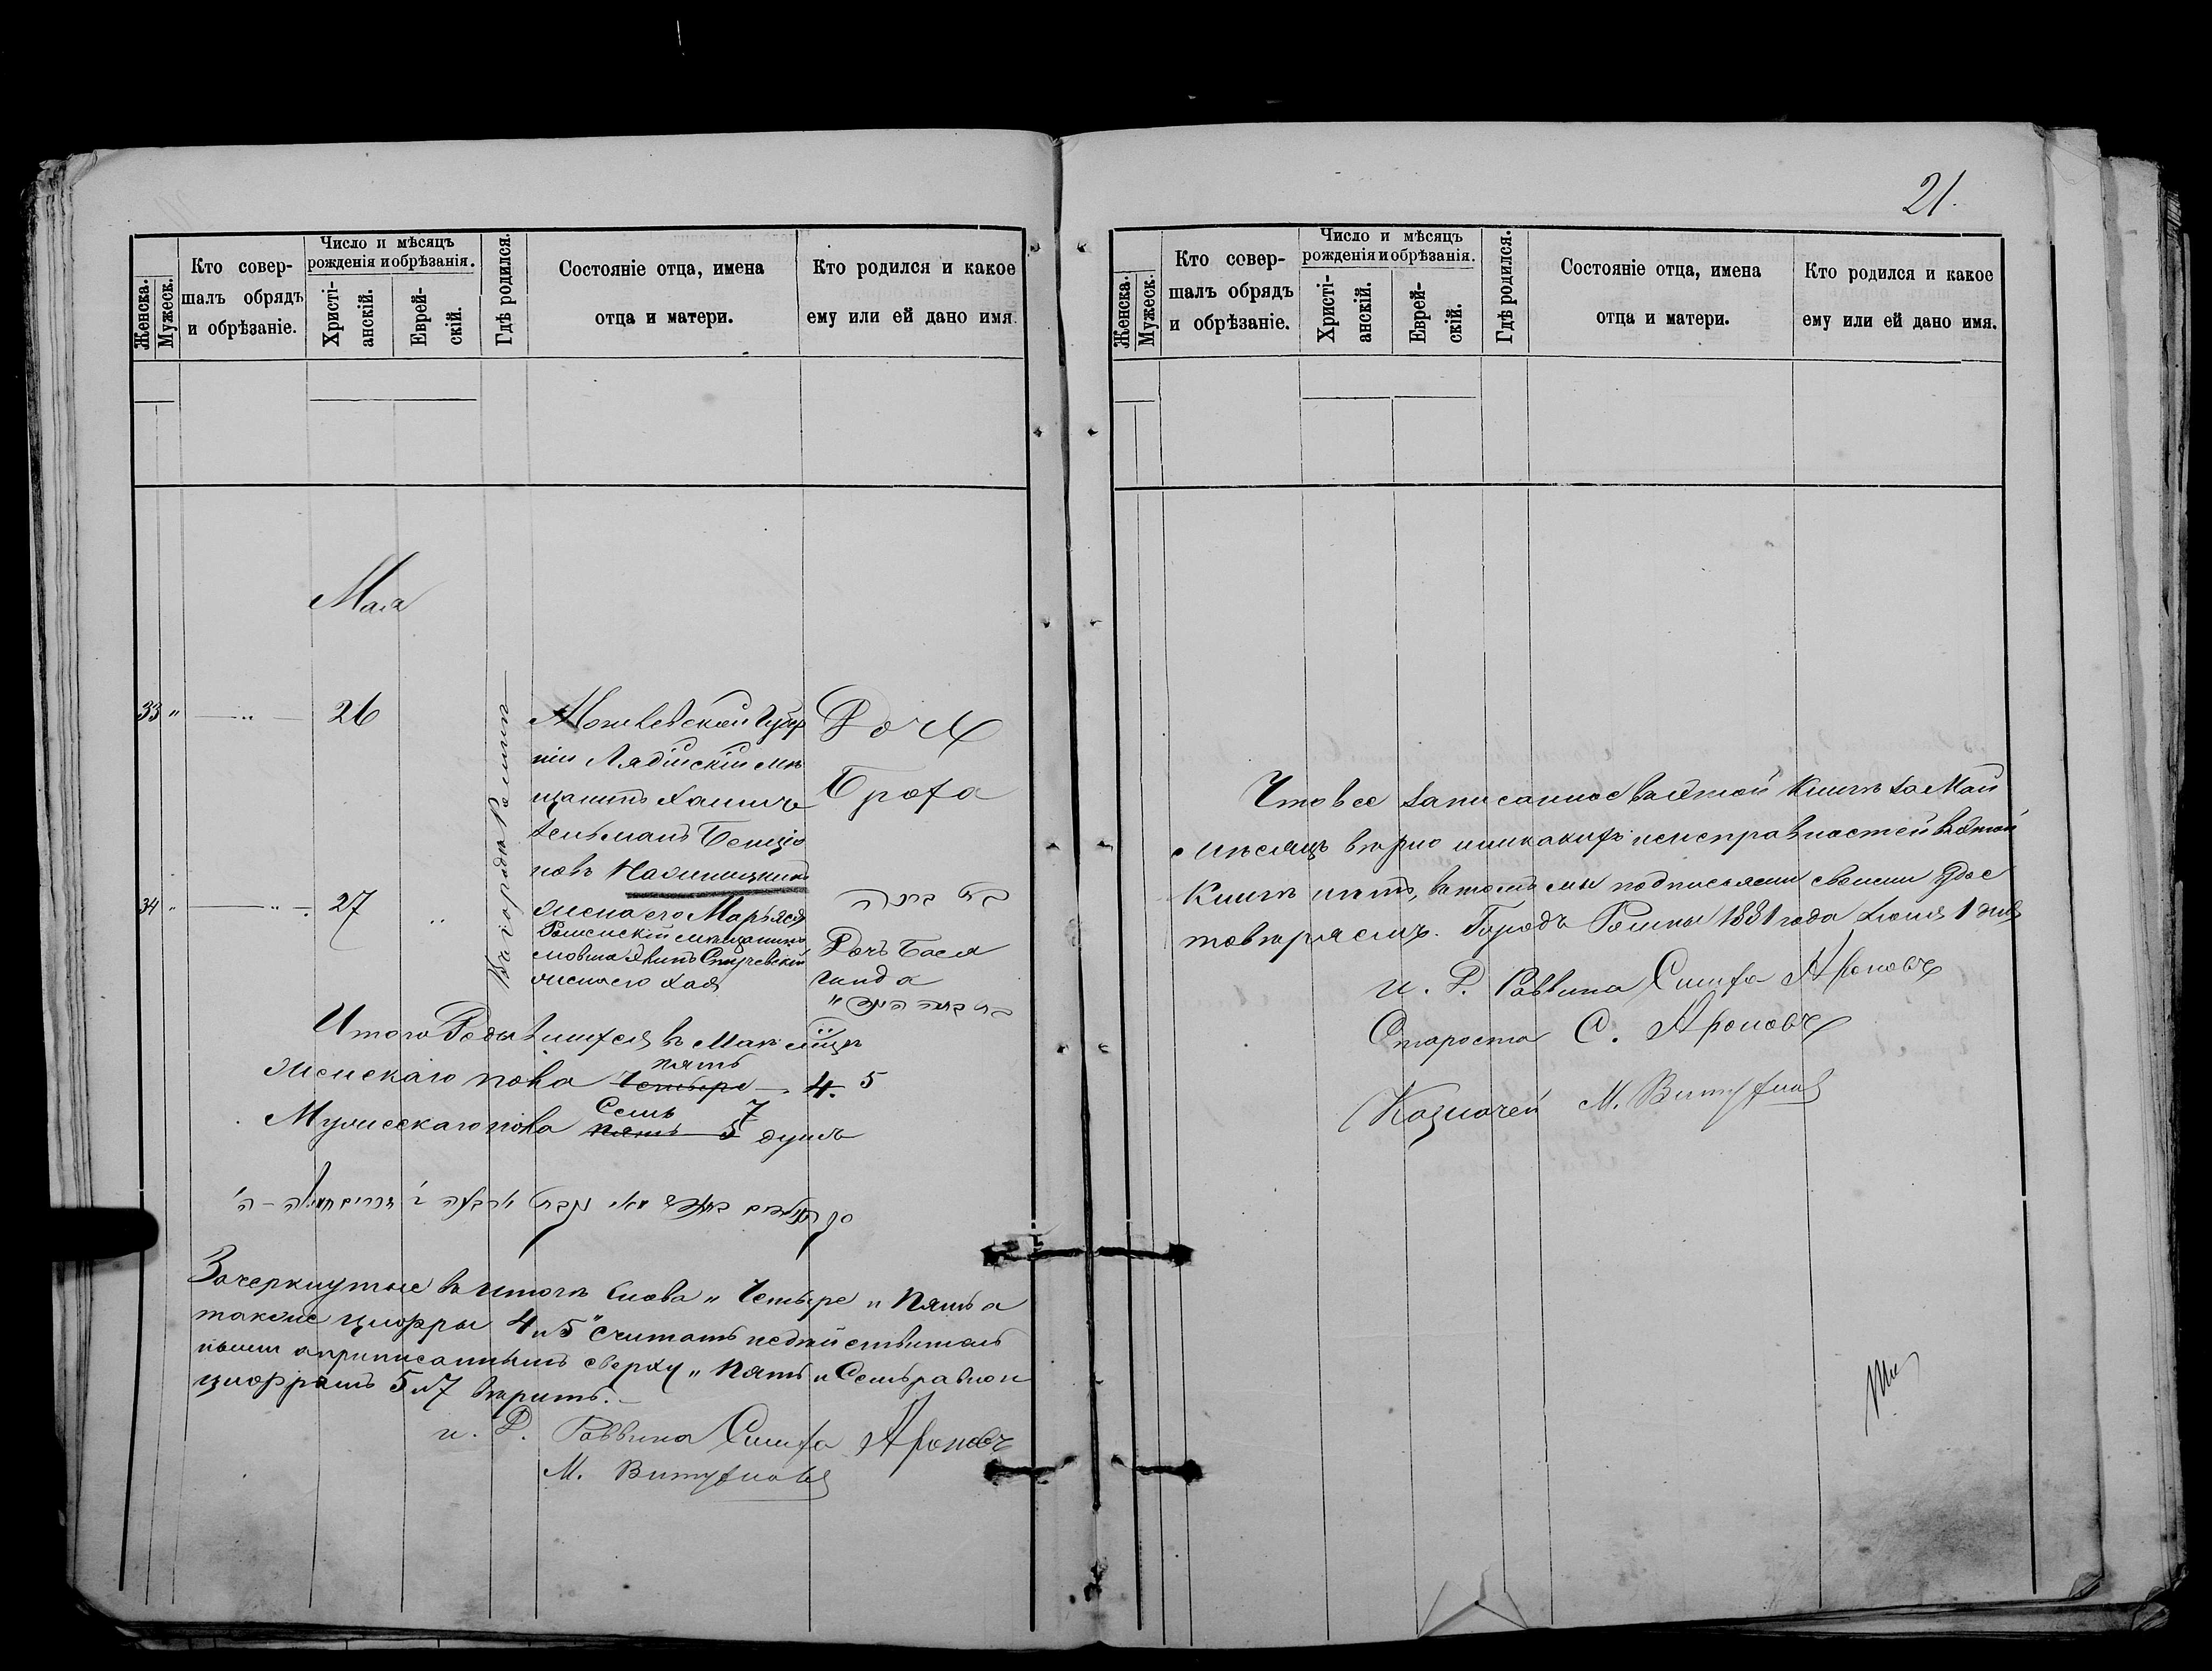 21.
Женска.
Мужеск.
Кто совер-
шалъ обрядъ
и обрѣзаніе.
Число и мѣсяцъ
рожденія и обрѣзанія.
Христі-
анскій.
Еврей-
скій.
Гдѣ родился.
Состояніе отца, имена
отца и матери.
Кто родился и какое
ему или ей дано имя.
Мая
33 " — " — 26
Въ городѣ Ромнахъ
Могилевской Губер
ніи Лядінскій мѣ
щанинъ Хаимъ
Зельманъ Бенціо
новъ
жена его Марьяся
Дочь
Броха
34 " — " — 27 "
Роменскій мѣщанинъ
Мовша
жена его Хая
Дочь Бася
Гинда
Итого Родившихся въ Маѣ мѣсяцѣ
пять
Женскаго пола Четыре — 4. 5
Семь 7
Мужескаго пола Пять — 5 душъ
Зачеркнутые въ итогѣ слова „ Четыре „ Пять а
также цыфры 4 и 5" считать недѣйствитель
ными а приписаннымъ сверху „ Пять и Семь равно и
цыфрамъ 5 и 7 вѣрить. —
и. д. Раввина Симха Ароновъ
М.
Женска.
Мужеск.
Кто совер-
шалъ обрядъ
и обрѣзаніе.
Число и мѣсяцъ
рожденія и обрѣзанія.
Христі-
анскій.
Еврей-
скій.
Гдѣ родился.
Состояніе отца, имена
отца и матери.
Кто родился и какое
ему или ей дано имя.
Что все записанное въ этой Книгѣ за Май
мѣсяцъ вѣрно и никакихъ неисправностей въ этой
Книгѣ нѣтъ, въ томъ мы подписями своими удос
товѣряемъ. Городъ Ромны 1881 года Іюня 1 дня
и. д. Раввина Симха Ароновъ
Староста С. Ароновъ
Казначей М.